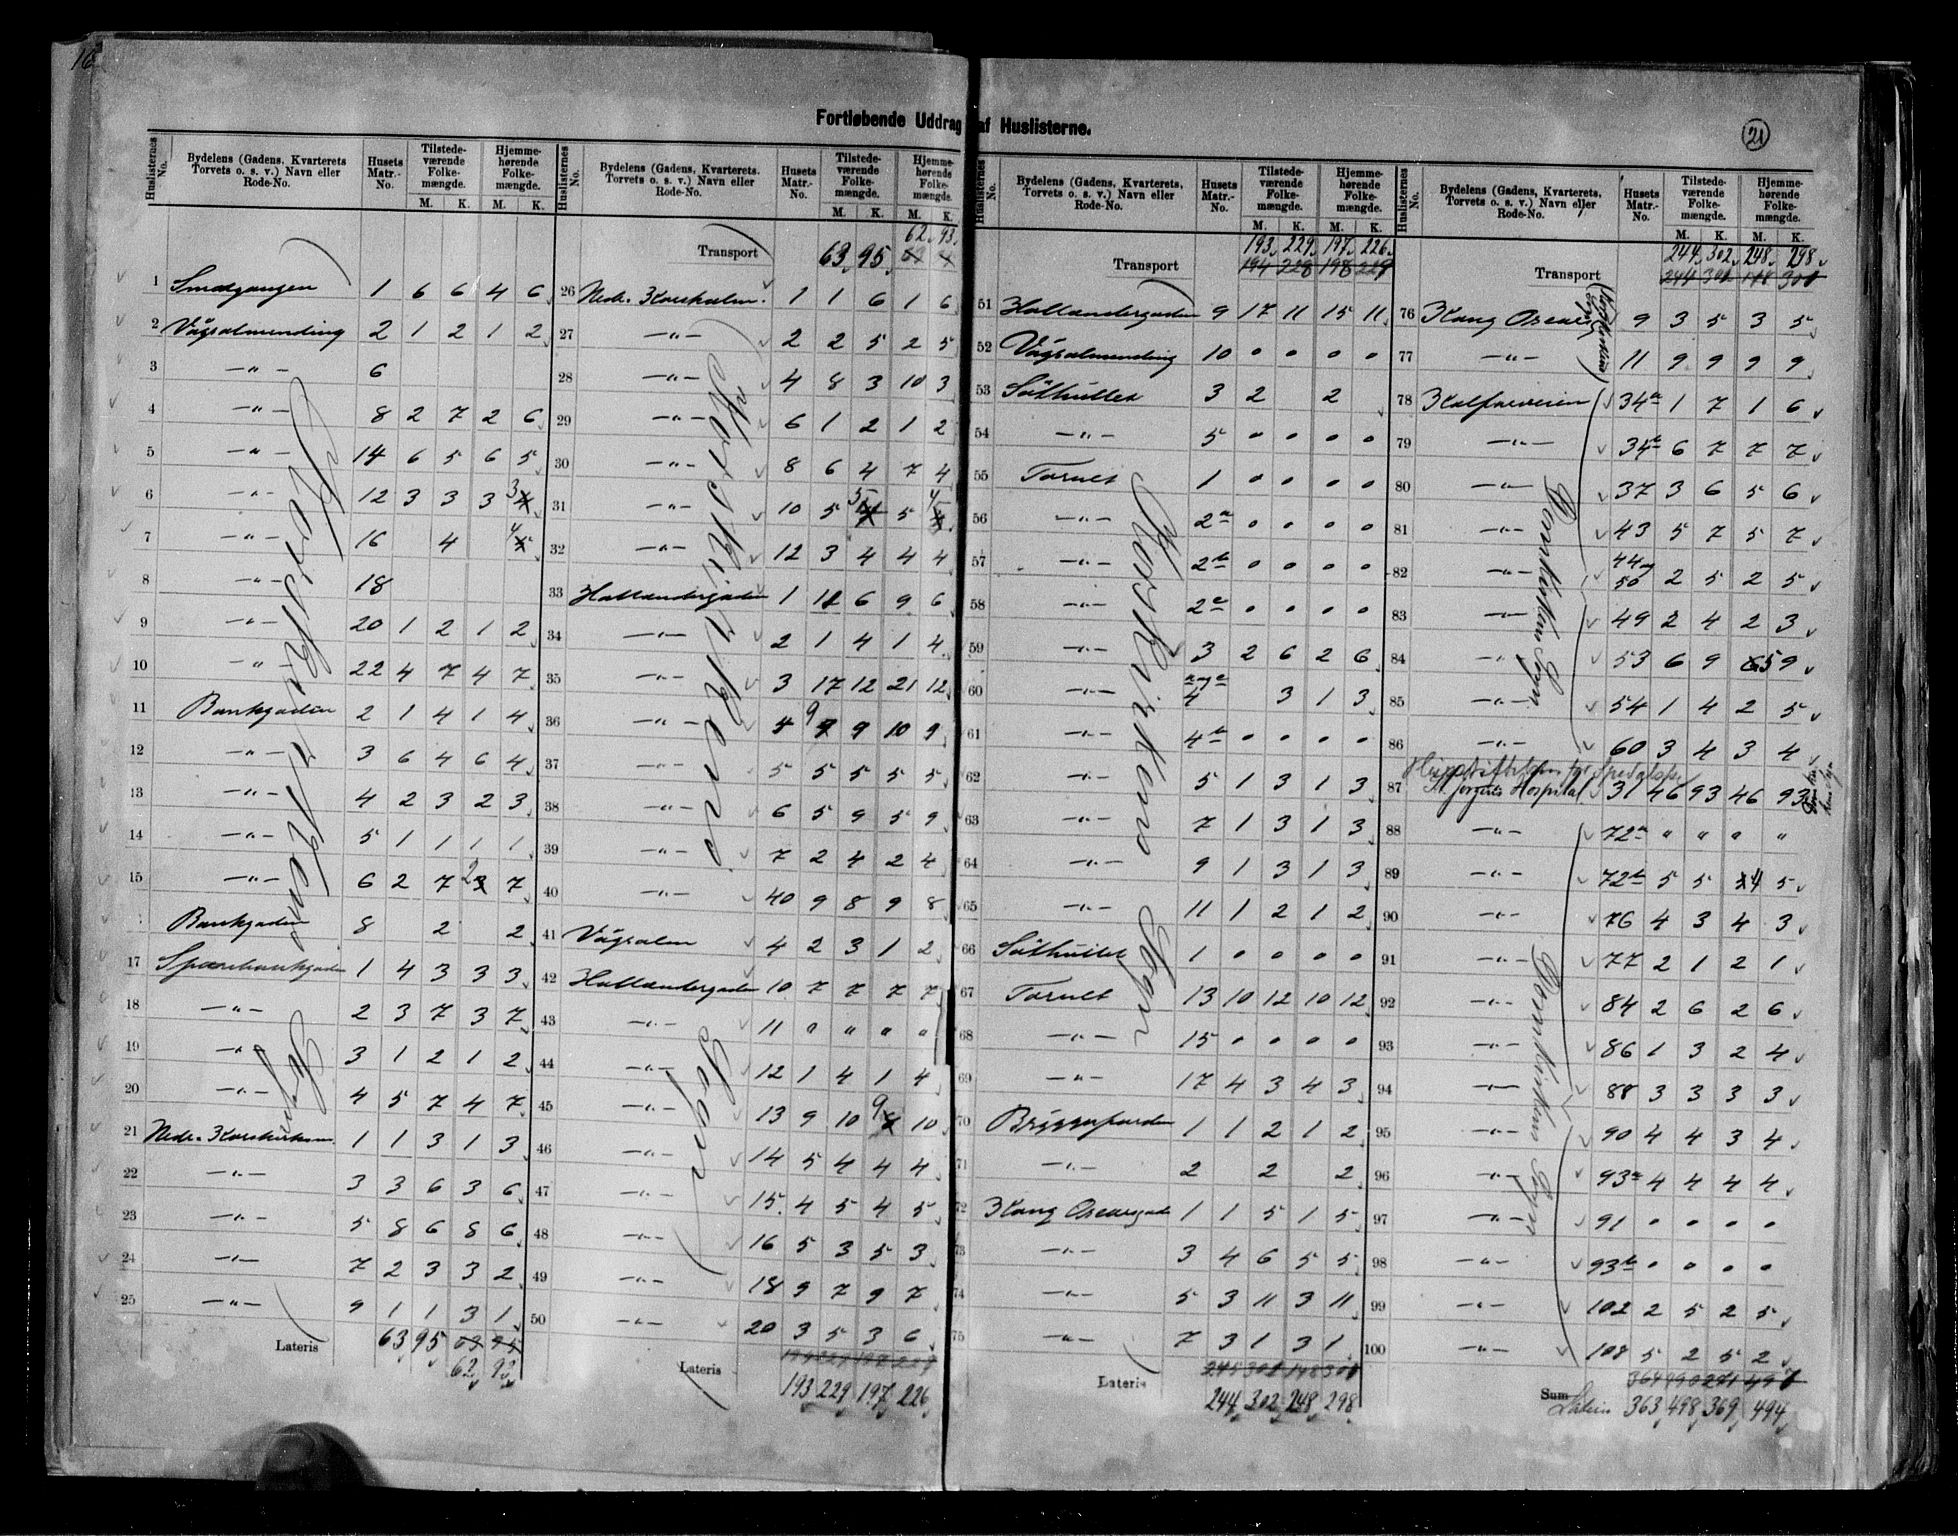 16
Fortløbende Uddrag af Huslisterne.
21
Huslisternes No. Bydelens (Gadens, Kvarterets Torvets o. s. v.) Navn eller Rode-No. Husets Matr.-No. Tilstedeværende Folkemængde. M. K. Hjemmehørende Folkemængde. M. K.
1 Smedgangen 1 6 6 4 6
2 Vågsalmending 2 1 2 1 2
3 —"— 6
4 —"— 8 2 7 2 6
5 —"— 14 6 5 6 5
6 —"— 12 3 3 3 3
7 —"— 16 4 4
8 —"— 18
9 —"— 20 1 2 1 2
10 —"— 22 4 7 4 7
11 Bankgaden 2 1 4 1 4
12 —"— 3 6 4 6 4
13 —"— 4 2 3 2 3
14 —"— 5 1 1 1 1
15 —"— 6 2 7 2 7
Bankgaden 8 2 2
17 Sparebankgaden 1 4 3 3 3
18 —"— 2 3 7 3 7
19 —"— 3 1 2 1 2
20 —"— 4 5 7 4 7
21 Nedr. Korskirkealm. 1 1 3 1 3
22 —"— 3 3 6 3 6
23 —"— 5 8 6 8 6
24 —"— 7 2 3 3 2
25 —"— 9 1 1 3 1
Korskirkens Sogn
Lateris 63 95 63 95
62 93
Huslisternes No. Bydelens (Gadens, Kvarterets. Torvets o. s. v.) Navn eller Rode-No. Husets Matr.-No. Tilstedeværende Folkemængde. M. K. Hjemmehørende Folkemængde. M. K.
62 93
Transport 63 95
26 Nedr. Korskalm. 1 1 6 1 6
27 —"— 2 2 5 2 5
28 —"— 4 8 3 10 3
29 —"— 6 1 2 1 2
30 —"— 8 6 4 7 4
31 —"— 10 5 5 5 4
32 —"— 12 3 4 4 4
33 Hollændergaden 1 11 6 9 6
34 —"— 2 1 4 1 4
35 —"— 3 17 12 21 12
36 —"— 4 9 9 10 9
37 —"— 5 5 5 5 5
38 —"— 6 5 9 5 9
39 —"— 7 2 4 2 4
40 —"— 40 9 8 9 8
41 Vågsalm 4 2 3 1 2
42 Hollændergaden 10 7 7 7 7
43 —"— 11 " " " "
44 —"— 12 1 4 1 4
45 —"— 13 9 10 9 10
46 —"— 14 5 4 4 4
47 —"— 15 4 5 4 5
48 —"— 16 5 3 5 3
49 —"— 18 9 7 9 7
50 —"— 20 3 5 3 6
Korskirkens Sogn
Lateris
193 229 197 226
Huslisternes No. Bydelens (Gadens, Kvarterets, Torvets o. s. v.) Navn eller Rode-No. Husets Matr.-No. Tilstedeværende Folkemængde. M. K. Hjemmehørende Folkemængde. M. K.
193 229 197 226
Transport 194 228 198 228
51 Hollændergaden 9 17 11 15 11
52 Vågsalmending 10 0 0 0 0
53 Sølhullet 3 2 2
54 —"— 5 0 0 0 0
55 Torvet 1 0 0 0 0
56 —"— 2a 0 0 0 0
57 —"— 2b 0 0 0 0
58 —"— 2c 0 0 0 0
59 —"— 3 2 6 2 6
60 —"— a og c 4 3 1 3
61 —"— 4b 0 0 0 0
62 —"— 5 1 3 1 3
63 —"— 7 1 3 1 3
64 —"— 9 1 3 1 3
65 —"— 11 1 2 1 2
66 Sølhullet 1 0 0 0 0
67 Torvet 13 10 12 10 12
68 —"— 15 0 0 0 0
69 —"— 17 4 3 4 3
70 Bryggesporden 1 1 2 1 2
71 —"— 2 2 2
72 Kong Oscarsgade 1 1 5 1 5
73 —"— 3 4 6 5 5
74 —"— 5 3 11 3 11
75 —"— 7 3 1 3 1
Korskirkens Sogn
Lateris 245 302 148 300
244 302 248 298
Huslisternes No. Bydelens (Gadens, Kvarterets, Torvets o. s. v.) Navn eller Rode-No. Husets Matr.-No. Tilstedeværende Folkemængde. M. K. Hjemmehørende Folkemængde. M. K.
244 302 248 298
Transport
76 Kong Oscars 9 3 5 3 5
77 —"— 11 9 9 9 9
78 Kalfarveien 34a 1 7 1 6
79 —"— 34b 6 7 7 7
80 —"— 37 3 6 5 6
81 —"— 43 5 7 5 7
82 —"— 44 og 50 2 5 2 5
83 —"— 49 2 4 2 3
84 —"— 53 6 9 5 9
85 —"— 54 1 4 2 5
86 —"— 60 3 4 3 4
87 St. Jørgens Hospital 31 46 93 46 93
88 —"— 72a " " " "
89 —"— 72b 5 5 4 5
90 —"— 76 4 3 4 3
91 —"— 77 2 1 2 1
92 —"— 84 2 6 2 6
93 —"— 86 1 3 2 4
94 —"— 88 3 3 3 3
95 —"— 90 4 4 3 4
96 —"— 93a 4 4 4 4
97 —"— 91 0 0 0 0
98 —"— 93b 0 0 0 0
99 —"— 102 2 5 2 5
100 —"— 108 5 2 5 2
Domkirkens Sogn
Domkirkens Sogn
Sum
Lateris 363 498 369 494